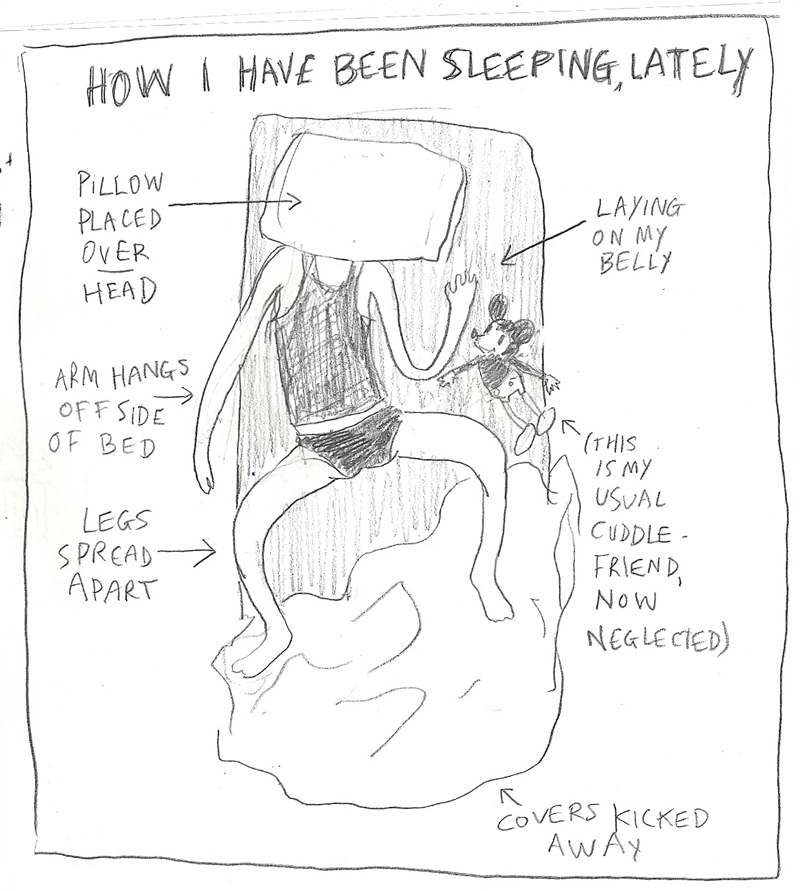 HOW I HAVE BEEN SLEEPING, LATELY
PILLOW
PLACED
OVER
HEAD
LAYING
ON MY
BELLY
ARM HANGS
OFF SIDE
OF BED
(THIS
IS MY
USUAL
CUDDLE-
FRIEND,
NOW
NEGLECTED)
LEGS
SPREAD
APART
COVERS KICKED
AWAY